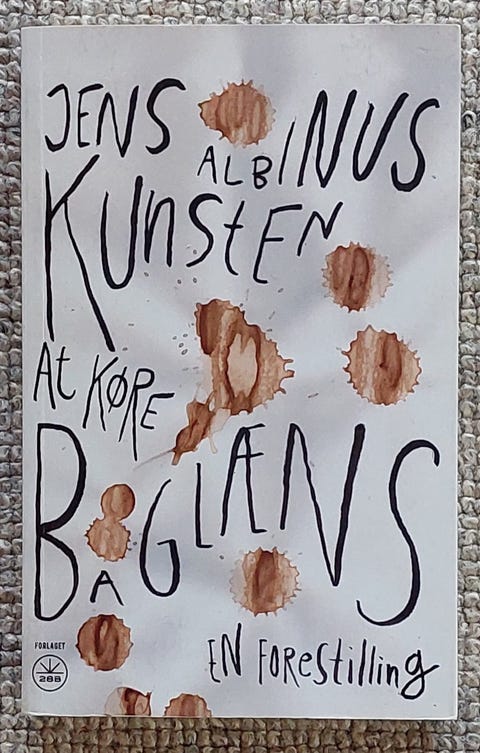 JENS
ALBINUS
KUNStEN
At KØRE
BAGLÆNS
EN FOREStilling
FORLAGET
28B